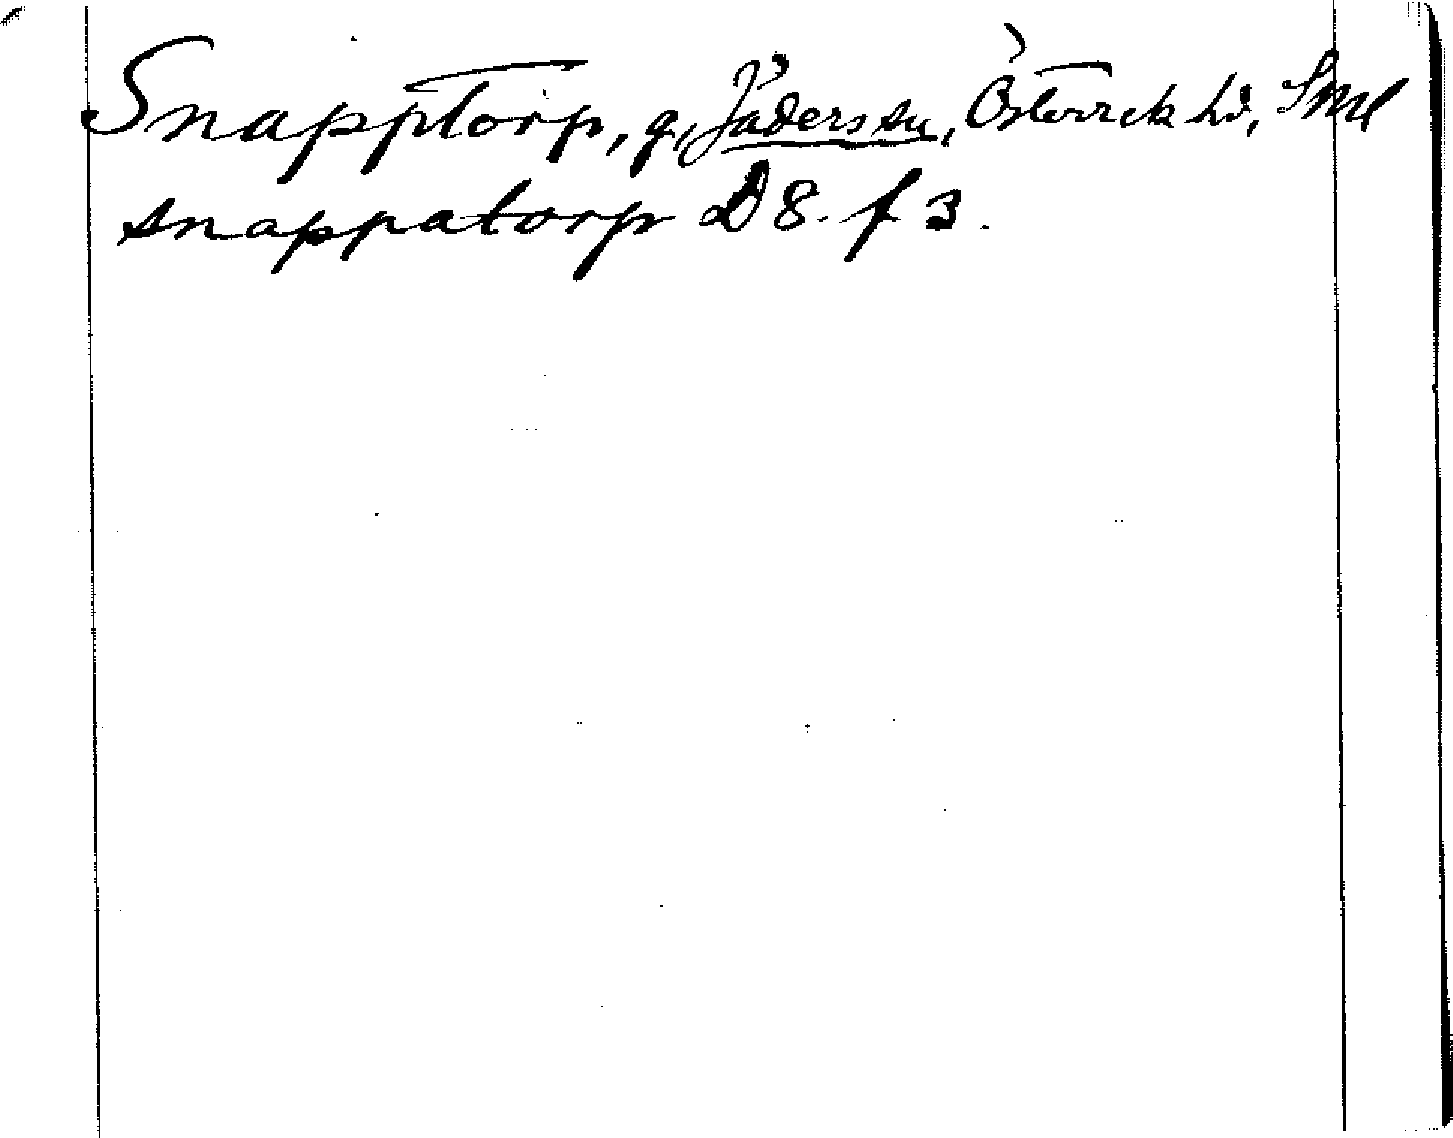 Snapptorp, g, Jäders sn, Österrek hd, Sml
Snappatorp D8. f 3.